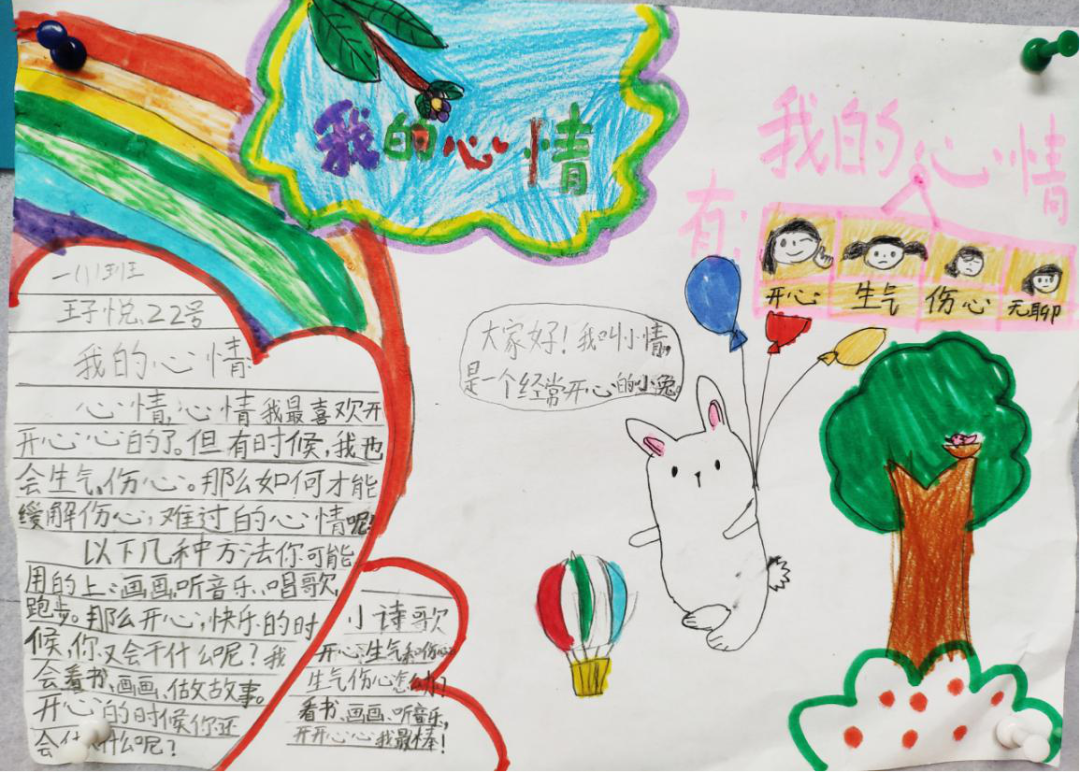 我的心情
我的心情
有:
开心
生气
伤心
无聊
大家好！我叫小情，
是一个经常开心的小兔。
一(1)班
王子悦、22号
我的心情
心情，心情我最喜欢开
开心心的了。但有时候，我也
会生气，伤心。那么如何才能
缓解伤心，难过的心情呢?
以下几种方法你可能
用的上：画画、听音乐、唱歌，
跑步。那么开心，快乐的时
候，你又会干什么呢？我
会看书、画画、做故事。
开心的时候你还
会什么呢？
小诗歌
开心，生气和伤心，
生气伤心怎么办？
看书、画画、听音乐，
开开心心我最棒！